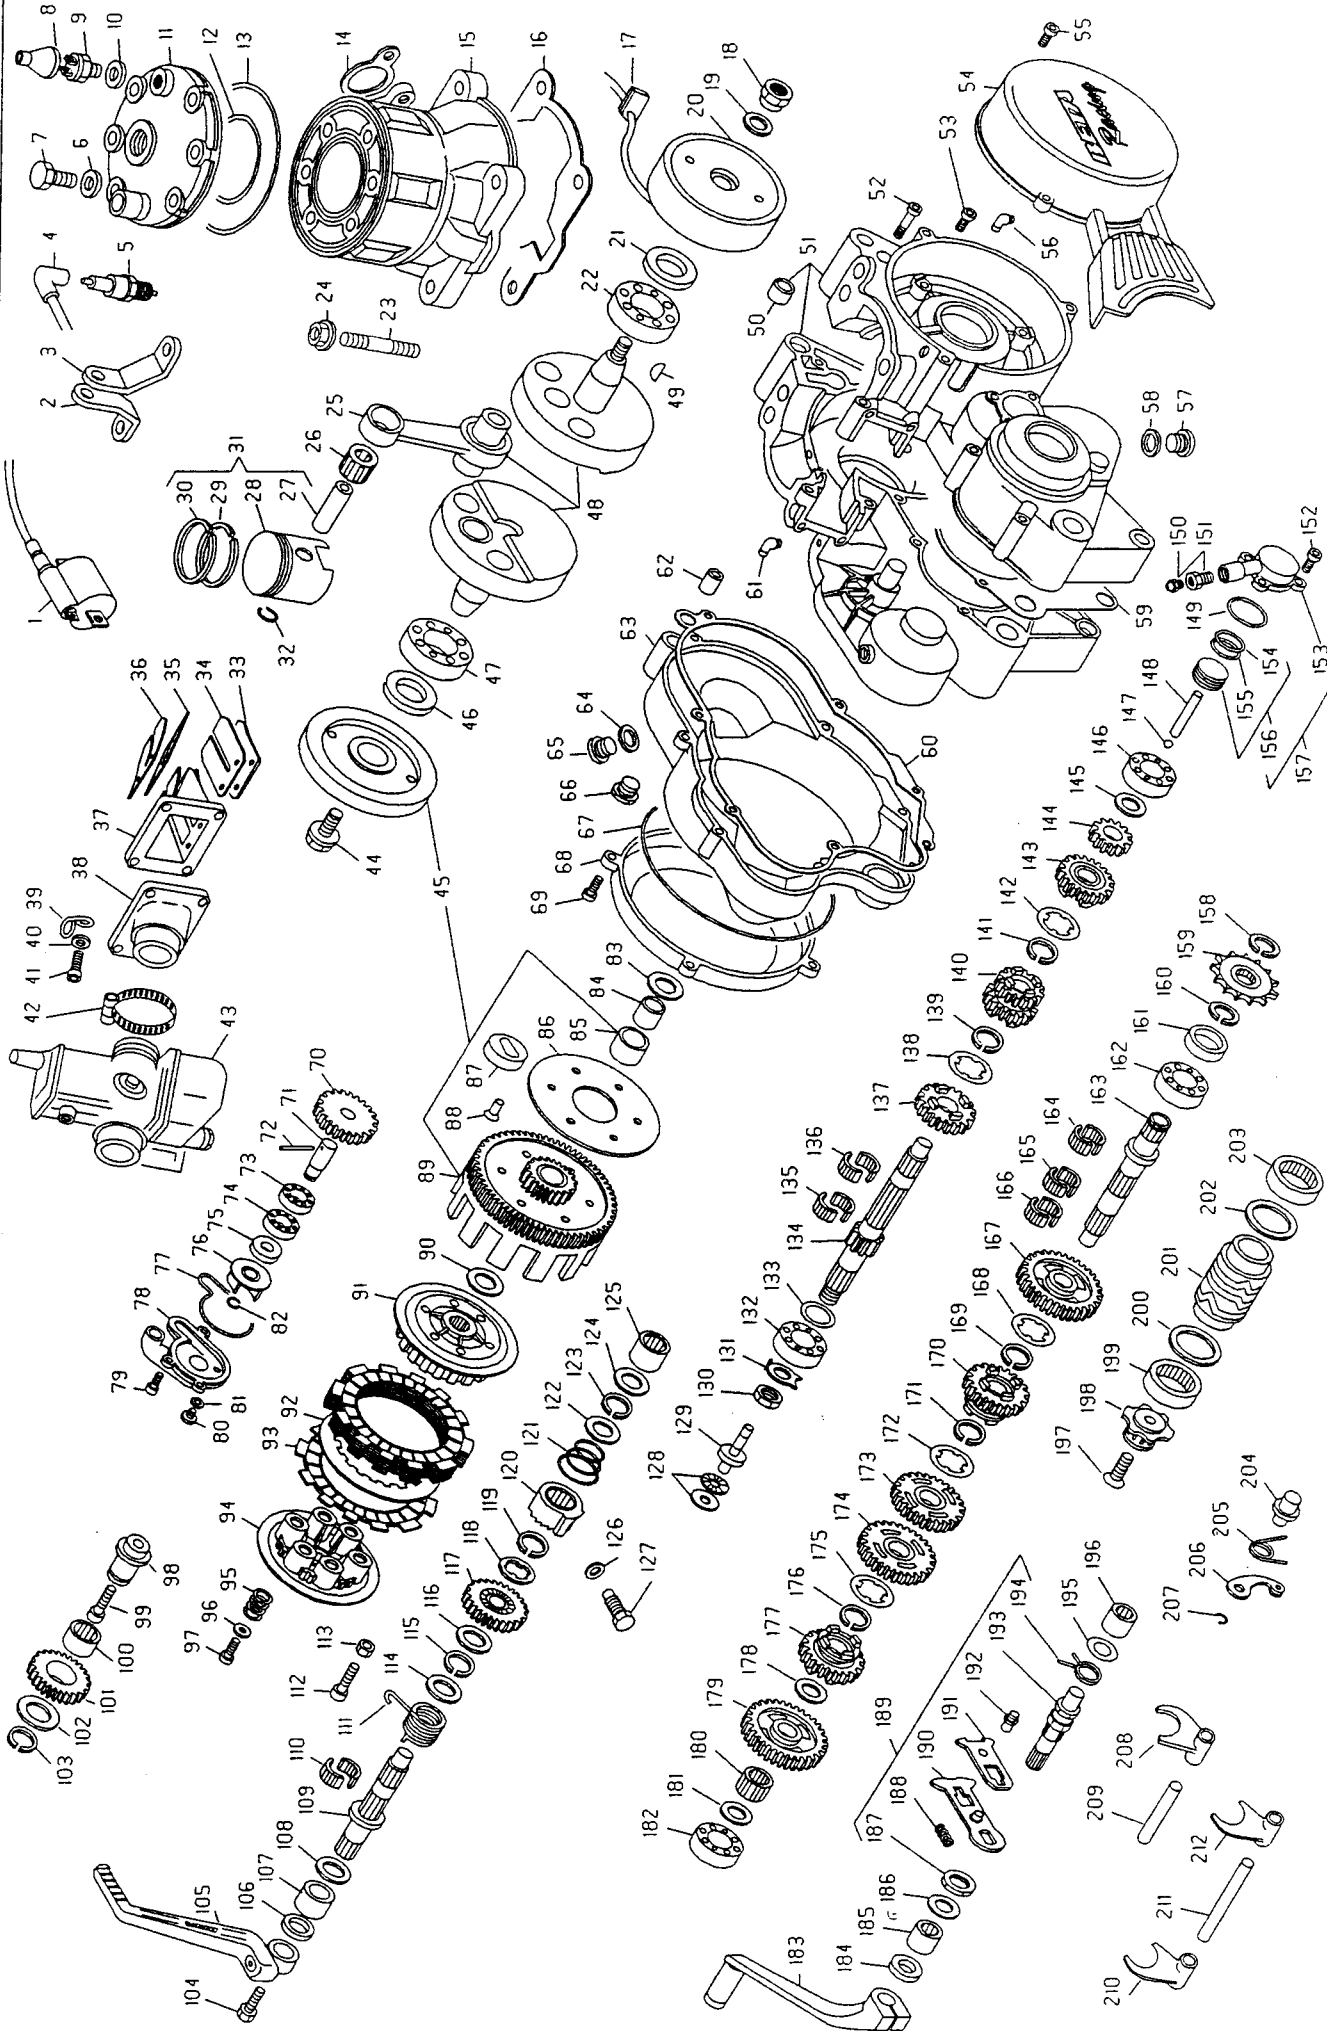 1
2
3
4
5
6
7
8
9
10
11
12
13
14
15
16
17
18
19
20
21
22
23
24
25
26
27
28
29
30
31
32
33
34
35
36
37
38
39
40
41
42
43
44
45
46
47
48
49
50
51
52
53
54
Racing
55
56
57
58
59
60
61
62
63
64
65
66
67
68
69
70
71
72
73
74
75
76
77
78
79
80
81
82
83
84
85
86
87
88
89
90
91
92
93
94
95
96
97
98
99
100
101
102
103
104
105
106
107
108
109
110
111
112
113
114
115
116
117
118
119
120
121
122
123
124
125
126
127
128
129
130
131
132
133
134
135
136
137
138
139
140
141
142
143
144
145
146
147
148
149
150
151
152
153
154
155
156
157
158
159
160
161
162
163
164
165
166
167
168
169
170
171
172
173
174
175
176
177
178
179
180
181
182
183
184
185
186
187
188
189
190
191
192
193
194
195
196
197
198
199
200
201
202
203
204
205
206
207
208
209
210
211
212